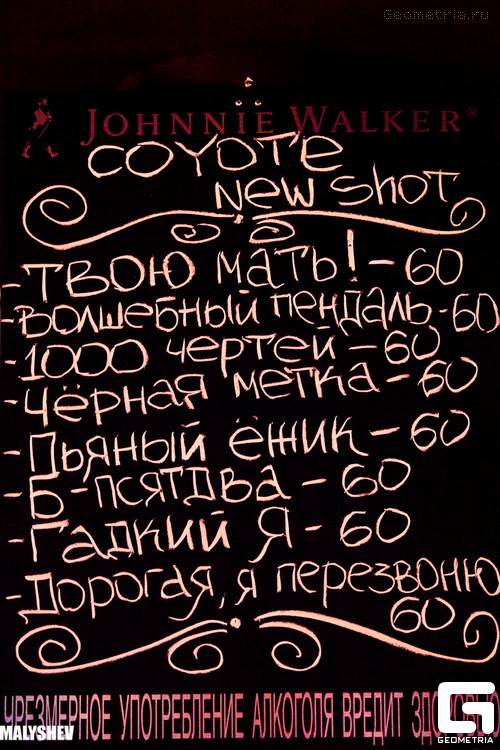 Geometria.ru
JOHNNIE WALKER®
COYOTE
New SHOT
- ТВОЮ МАТЬ! - 60
- ВОЛШЕБНЫЙ ПЕНДАЛЬ - 60
- 1000 ЧЕРТЕЙ - 60
- ЧЁРНАЯ МЕТКА - 60
- ПЬЯНЫЙ ЁЖИК - 60
- Б-ПСЯТДВА - 60
- ГАДКИЙ Я - 60
- ДОРОГАЯ, Я ПЕРЕЗВОНЮ
60
ЧРЕЗМЕРНОЕ УПОТРЕБЛЕНИЕ АЛКОГОЛЯ ВРЕДИТ ЗДОРОВЬЮ
MALYSHEV
G
GEOMETRIA